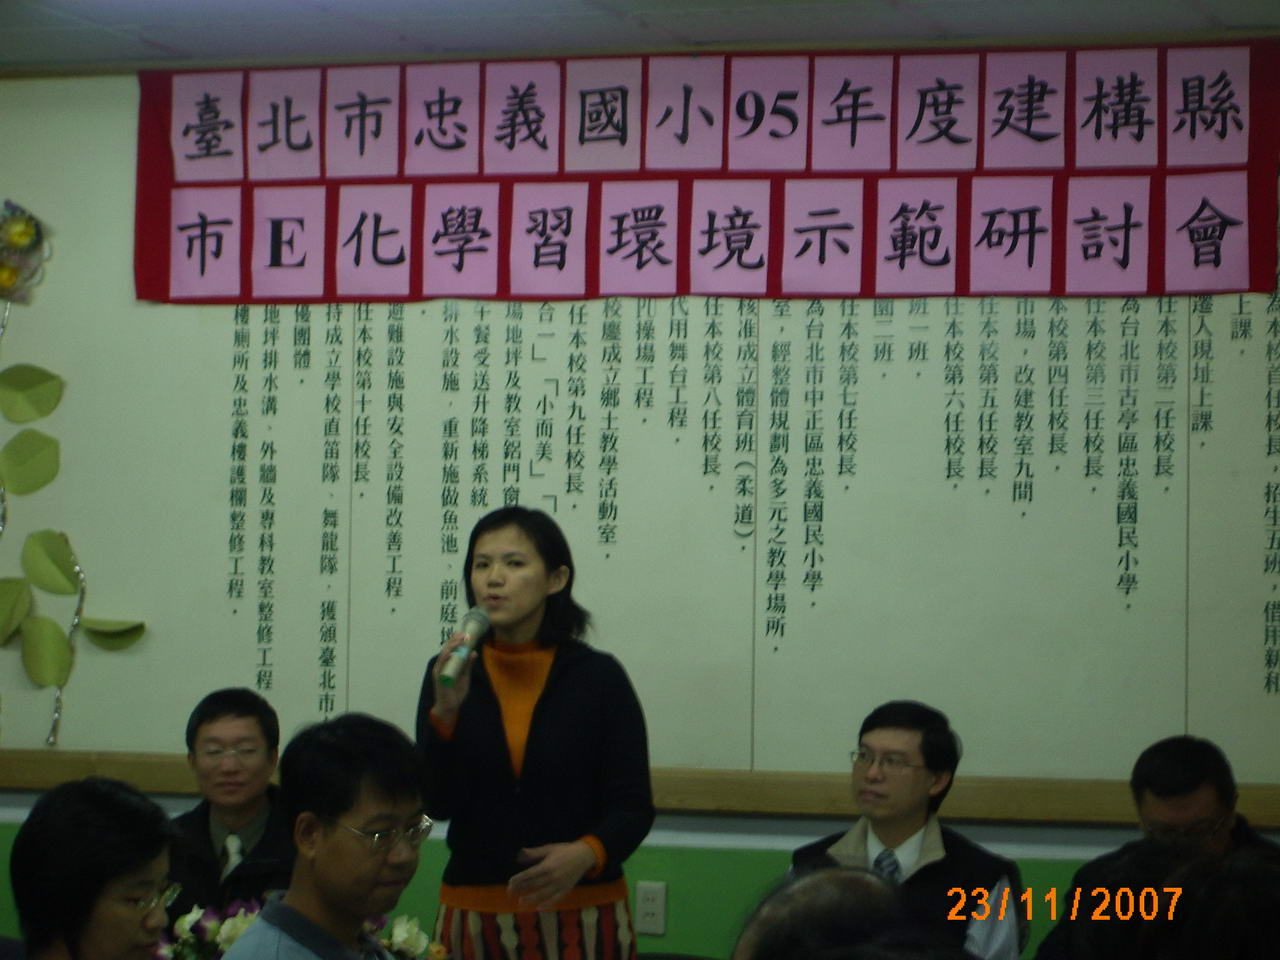 臺北市忠義國小95年度建構縣
市E化學習環境示範研討會
上課．
遷入現址上課．
任本校第二任校長．
為台北市古亭區忠義國民小學．
任本校第三任校長．
本校第四任校長．
市場，改建教室九間．
任本校第五任校長．
任本校第六任校長．
班一班．
園二班．
任本校第七任校長．
為台北市中正區忠義國民小學．
室，經整體規劃為多元之教學場所．
核准成立體育班（柔道）．
任本校第八任校長．
代用舞台工程．
PU操場工程．
校慶成立鄉土教學活動室．
任本校第九任校長．
合一」「小而美」「
場地坪及教室鋁門窗
午餐受送升降梯系統
排水設施，重新施做魚池、前庭地
避難設施與安全設備改善工程．
任本校第十任校長．
持成立學校直笛隊、舞龍隊，獲頒臺北市
優團體．
地坪排水溝、外牆及專科教室整修工程
樓廁所及忠義樓護欄整修工程．
23/11/2007